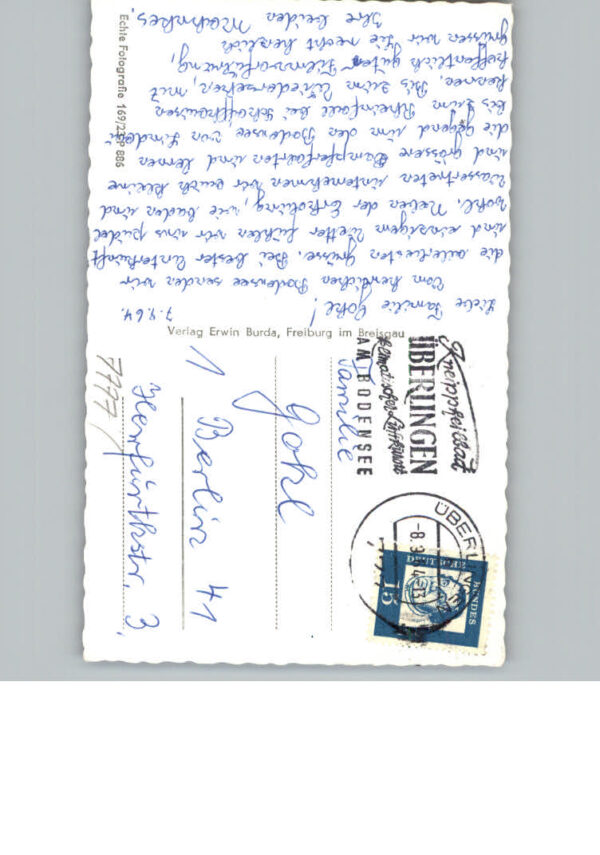 7.9.64.
Liebe Familie Gohl!
Vom herrlichen Bodensee senden wir
die allerbesten Grüsse. Bei bester Unterkunft
und einzigem Wetter fühlen wir uns pudel
wohl. Neben der Erholung, wie baden und
Wassertreten unternehmen wir auch kleine
und grössere Dampferfahrten und lernen
die Gegend um den Bodensee von Lindau
bis zum Rheinfall bei Schaffhausen
kennen. Bis zum Wiedersehen, mit
hoffentlich guter Filmvorführung,
grüssen wir Sie recht herzlich
Ihre beiden Machnikes.
Echte Fotografie 169/2199 886
Verlag Erwin Burda, Freiburg im Breisgau
Kneippheilbad
ÜBERLINGEN
Klimatischer Luftkurort
AM BODENSEE
ÜBERLINGEN
DEUTSCHE BUNDES
15
Familie
Gohl
1 Berlin 41
Herfurthstr. 3.
7777/